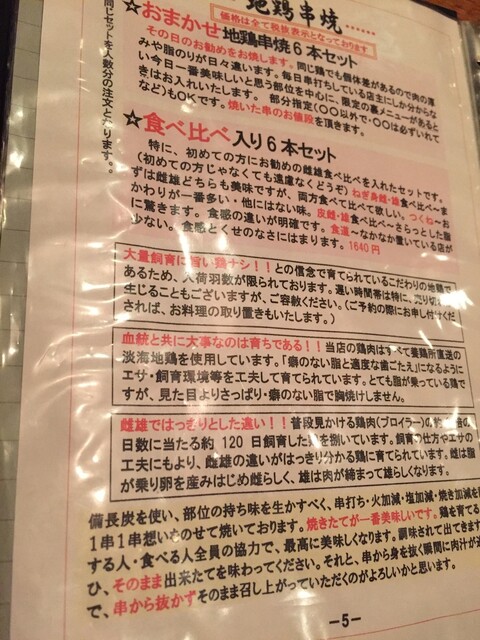 地鶏串焼……
価格は全て税抜表示となっております
同じセットを人数分の注文となります。
☆おまかせ地鶏串焼6本セット
その日のお勧めをお焼します。同じ鶏でも個体差があるので肉の厚
みや脂のりが日々違います。毎日串打ちしている店主にしか分からな
い今日一番美味しいと思う部位を中心に、限定の裏メニューがあると
きはお入れいたします。 部分指定(〇〇以外で・〇〇は必ずいれて
など)もOKです。焼いた串のお値段を頂きます。
☆食べ比べ入り6本セット
特に、初めての方にお勧めの雌雄食べ比べを入れたセットです。
(初めての方じゃなくても遠慮なくどうぞ)ねぎ身雌・雄食べ比べ~ま
ずは雌雄どちらも美味ですが、両方食べて比べて欲しい。つくね~こ
かわりが一番多い・他にはない味。皮雌・雄食べ比べ~さらっとした脂
に驚きます。食感の違いが明確です。食道~なかなか置いている店が
少ない。食感とくせのなさにはまります。1640円
大量飼育に旨い鶏ナシ!!との信念で育てられているこだわりの地鶏で
あるため、入荷羽数が限られております。遅い時間帯は特に、売り切れ
生じることもございますが、ご容赦ください。(ご予約の際にお申し付けくだ
されば、お料理の取り置きもいたします。)
血統と共に大事なのは育ちである!!当店の鶏肉はすべて養鶏所直送の
淡海地鶏を使用しています。「癖のない脂と適度な歯ごたえ」になるように
エサ・飼育環境等を工夫して育てられています。とても脂が乗っている鶏で
すが、見た目よりさっぱり・癖のない脂で胸焼けしません。
雌雄ではっきりとした違い!!普段見かける鶏肉(ブロイラー)の約 倍の
日数に当たる約 120 日飼育した を捌いています。飼育の仕方やエサの
工夫にもより、雌雄の違いがはっきり分かる鶏に育てられています。雌は脂
が乗り卵を産みはじめ雌らしく、雄は肉が締まって雄らしくなります。
備長炭を使い、部位の持ち味を生かすべく、串打ち・火加減・塩加減・焼き加減を
1串1串想いをのせて焼いております。焼きたてが一番美味しいです。鶏を育てる
する人・食べる人全員の協力で、最高に美味しくなります。調味されて出てきます
ひ、そのまま出来たてを味わってください。それと、串から身を抜く瞬間に肉汁が
で、串から抜かずそのまま召し上がっていただくのがよろしいかと思います。
-5-